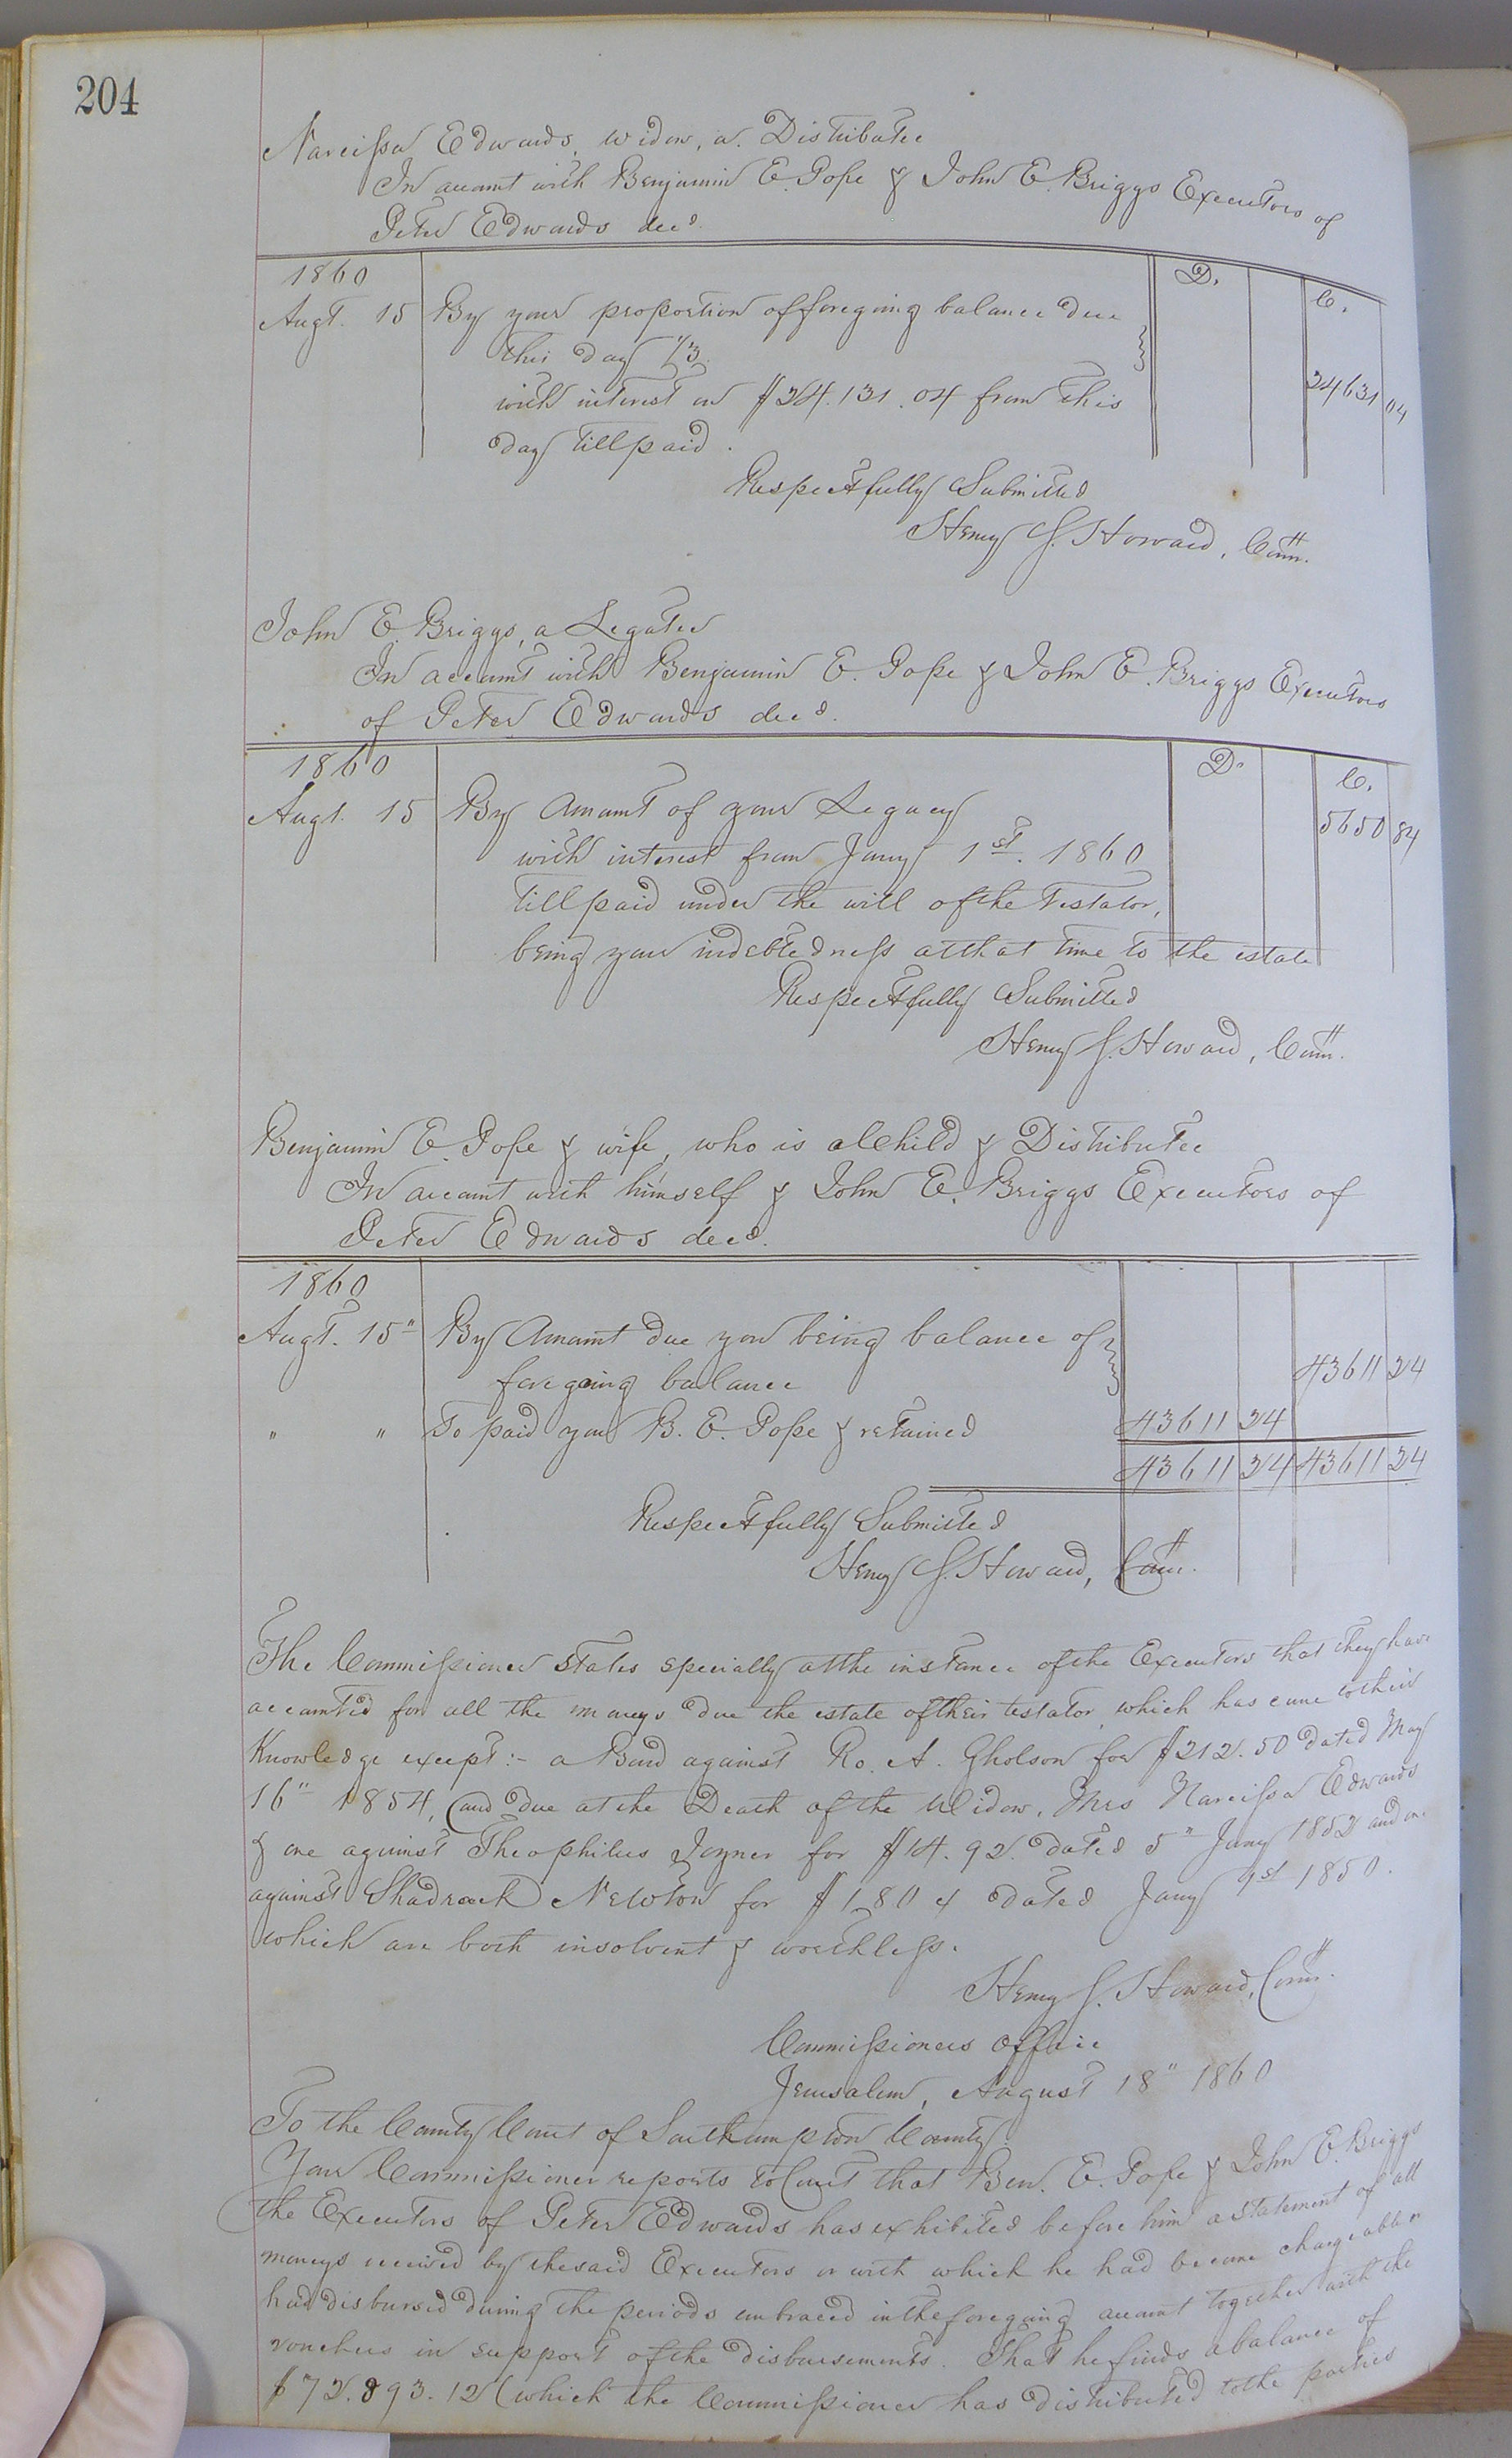 204
Narcissa Edwards, widow, a Distributee
In account with Benjamin E. Pope & John E. Briggs Executors of
Peter Edwards decd.
1860
D. C.
Augt. 15 By your proportion of foregoing balance due
this day 1/3
24631 04
with interest on $24.131.04 from this
day till paid.
Respectfully Submitted
Henry J. Howard, Comr.
John E. Briggs, a Legatee
In account with Benjamin E. Pope & John E. Briggs Executors
of Peter Edwards decd.
1860
D. C.
Augt. 15 By Amount of your Legacy 5650 84
with interest from Jany 1st. 1860
till paid under the will of the Testator,
being your indebtedness at that time to the estate
Respectfully Submitted
Henry J. Howard, Comr.
Benjamin E. Pope & wife, who is a Child & Distributee
In account with himself & John E. Briggs Executors of
Peter Edwards decd.
1860
Augt. 15" By Amount due you being balance of
foregoing balance 43611 24
" " To paid you B. E. Pope & retained 43611 24
43611 24 43611 24
Respectfully Submitted
Henry J. Howard, Comr.
The Commissioner states specially at the instance of the Executors that they have
accounted for all the moneys due the estate of their testator, which has come to their
Knowledge except:- a Bond against Ro. A. Gholson for $212.50 dated May
16" 1854, (and due at the Death of the Widow, Mrs Narcissa Edwards
& one against Theophilus Joyner for $14.92. dated 5" Jany 1852 and one
against Shadrack Newton for $180 4 dated Jany 1st 1850.
which are both insolvent & worthless.
Henry J. Howard, Comr.
Commissioners Office
Jerusalem, August 18" 1860
To the County Court of Southampton County.
Your Commissioner reports to Court that Ben. E. Pope & John E. Briggs
the Executors of Peter Edwards has exhibited before him a statement of all
moneys received by the said Executors or with which he had become chargeable or
had disbursed during the periods embraced in the foregoing account together with the
vouchers in support of the disbursements. That he finds a balance of
$72.893.12 (which the Commissioner has distributed to the parties